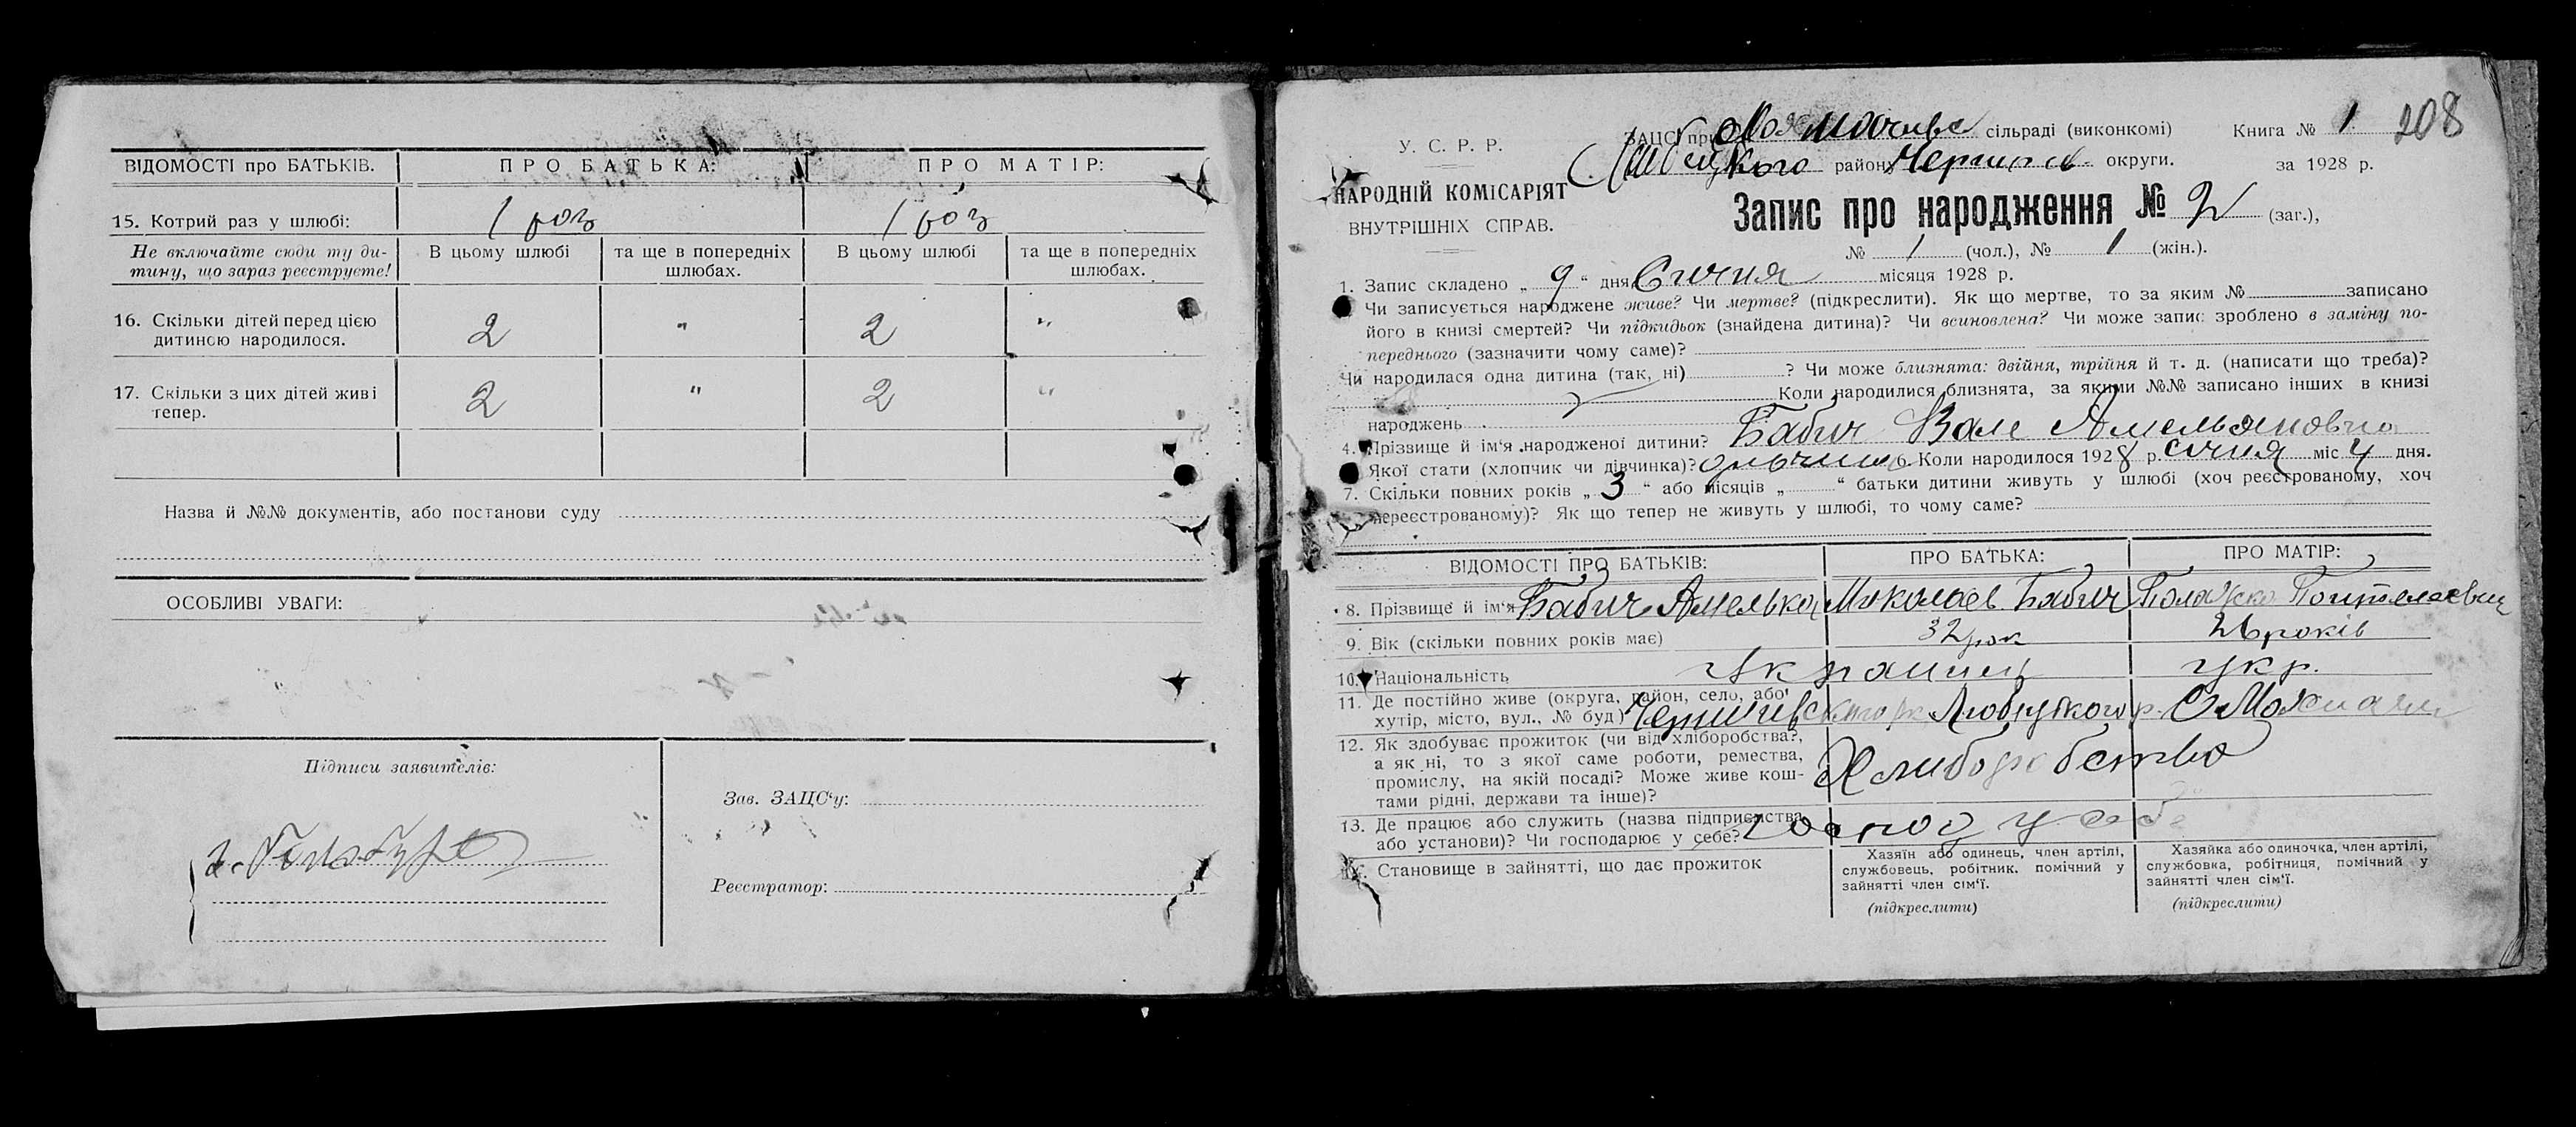 ВІДОМОСТІ про БАТЬКІВ. ПРО БАТЬКА: ПРО МАТІР:
15. Котрий раз у шлюбі: 1 раз 1 раз
Не включайте сюди ту ди-
тину, що зараз реєструєте!
В цьому шлюбі та ще в попередніх шлюбах. В цьому шлюбі та ще в попередніх шлюбах.
16. Скільки дітей перед цією
дитиною народилося. 2 " 2 "
17. Скільки з цих дітей живі
тепер. 2 " 2 "
Назва й №№ документів, або постанови суду
ОСОБЛИВІ УВАГИ:
Підписи заявителів:
Зав. ЗАЦС‘у:
Реєстратор:
208
У. С. Р. Р.
НАРОДНІЙ КОМІСАРІЯТ
ВНУТРІШНІХ СПРАВ.
ЗАЦС при сільраді (виконкомі) Книга № 1
району округи. за 1928 р.
Запис про народження № 2 (заг.),
№ 1 (чол.), № 1 (жін.).
1. Запис складено „ 9 “ дня Січня місяця 1928 р.
Чи записується народжене живе? Чи мертве? (підкреслити). Як що мертве, то за яким № записано
його в книзі смертей? Чи підкидьок (знайдена дитина)? Чи всиновлена? Чи може запис зроблено в заміну по-
переднього (зазначити чому саме)?
Чи народилася одна дитина (так, ні) ? Чи може близнята: двійня, трійня й т. д. (написати що треба)?
Коли народилися близнята, за якими №№ записано інших в книзі
народжень
4. Прізвище й ім‘я народженої дитини? Бабич Вале Амельяновна
Якої стати (хлопчик чи дівчинка)? 6. Коли народилося 1928 р. січня міс 4 дня.
7. Скільки повних років „ 3 “ або місяців „ “ батьки дитини живуть у шлюбі (хоч реєстрованому, хоч
нереєстрованому)? Як що тепер не живуть у шлюбі, то чому саме?
ВІДОМОСТІ ПРО БАТЬКІВ: ПРО БАТЬКА: ПРО МАТІР:
8. Прізвище й ім‘я Бабич Амелько Бабич
9. Вік (скільки повних років має) 32 рок 26 років
10. Національність Українец укр.
11. Де постійно живе (округа, район, село, або
хутір, місто, вул., № буд)
12. Як здобуває прожиток (чи від хліборобства?,
а як ні, то з якої саме роботи, ремества,
промислу, на якій посаді? Може живе кош-
тами рідні, держави та інше)? Хлиборобство
13. Де працює або служить (назва підприємства
або установи)? Чи господарює у себе?
Становище в зайнятті, що дає прожиток
Хазяїн або одинець, член артілі,
службовець, робітник, помічний у
зайнятті член сім‘ї.
(підкреслити)
Хазяйка або одиночка, член артілі,
службовка, робітниця, помічний у
зайнятті член сім‘ї.
(підкреслити)